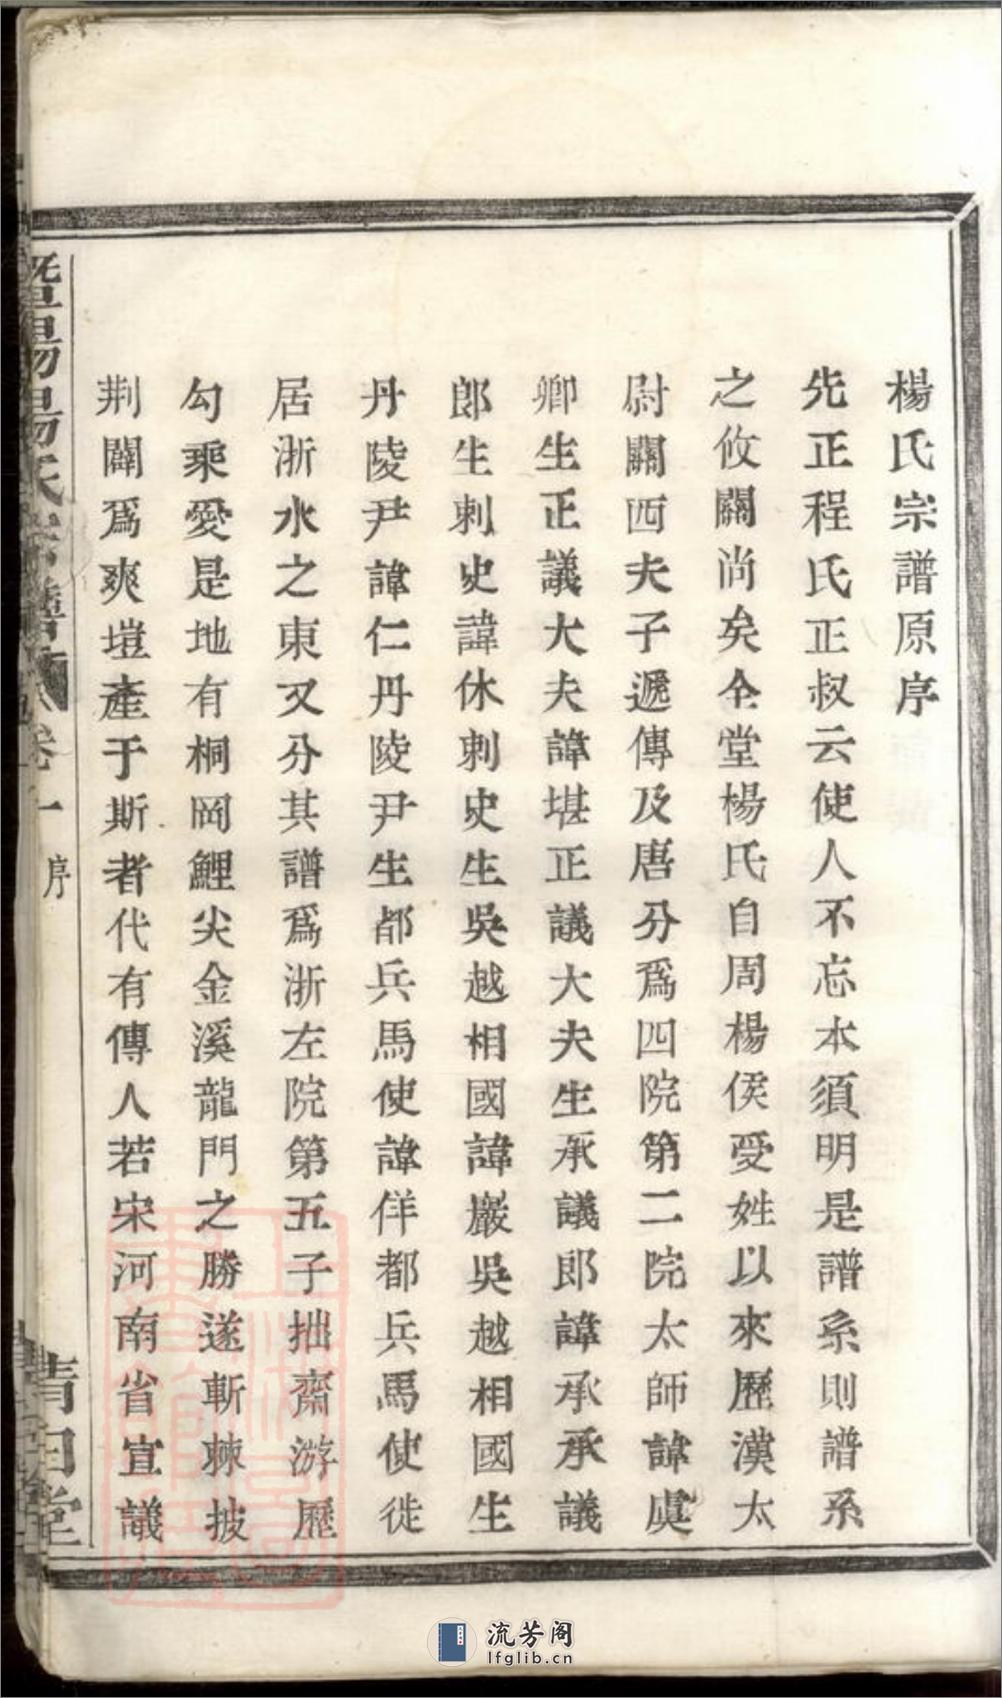 楊氏宗譜原序
先正程氏正叔云使人不忘本須明是譜系則譜系
之攸關尚矣仝堂楊氏自周楊侯受姓以來歷漢太
尉關西夫子遞傳及唐分爲四院第二院太師諱虞
卿生正議大夫諱堪正議大夫生承議郎諱承承議
郎生刺史諱休刺史生吳越相國諱巖吳越相國生
丹陵尹諱仁丹陵尹生都兵馬使諱佯都兵馬使徙
居浙水之東又分其譜爲浙左院第五子拙齋游歷
勾乘愛是地有桐岡鯉尖金溪龍門之勝遂斬棘披
荆闢爲爽塏產于斯者代有傳人若宋河南省宣議
暨陽楊氏宗譜 卷一 序 清白堂
流芳阁
lfglib.cn